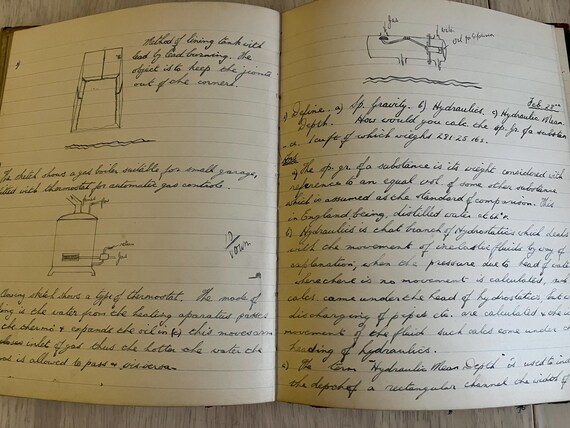 Method of lining tank with
lead by lead burning. The
object is to keep the joints
out of the corners.
The sketch shows a gas boiler suitable for small garage,
fitted with thermostat for automatic gas control.
gas
12
sketch shows a type of thermostat. The mode of
is the water from the heating aparatus passes
the & expands the oil in (c) this moves arm
inlet of gas thus the hotter the water the
gas is allowed to pass & vis versa
gas
Feb. 28th
1) Define. a) Sp. gravity. b) Hydraulics. c) Hydraulic Mean
Depth. How would you calc the sp. gr. of a substan
1 cu ft of which weighs 281.25 lbs.
a) The sp. gr. of a substance is its weight considered with
reference to an equal vol. of some other substance
which is assumed as the standard of comparison. This
in England, being, distilled water at 62°F.
b) Hydraulics is that branch of Hydrostatics which deals
with the movement of fluids by way of
explanation, when the pressure due to head of water
where there is no movement is calculated, such
calcs. came under the head of hydrostatics, but
discharging of pipes etc. are calculated & the
movement of the fluid such calcs come under the
heading of hydraulics.
c) The term "Hydraulic Mean Depth" is used to
the depth of a rectangular channel the width of